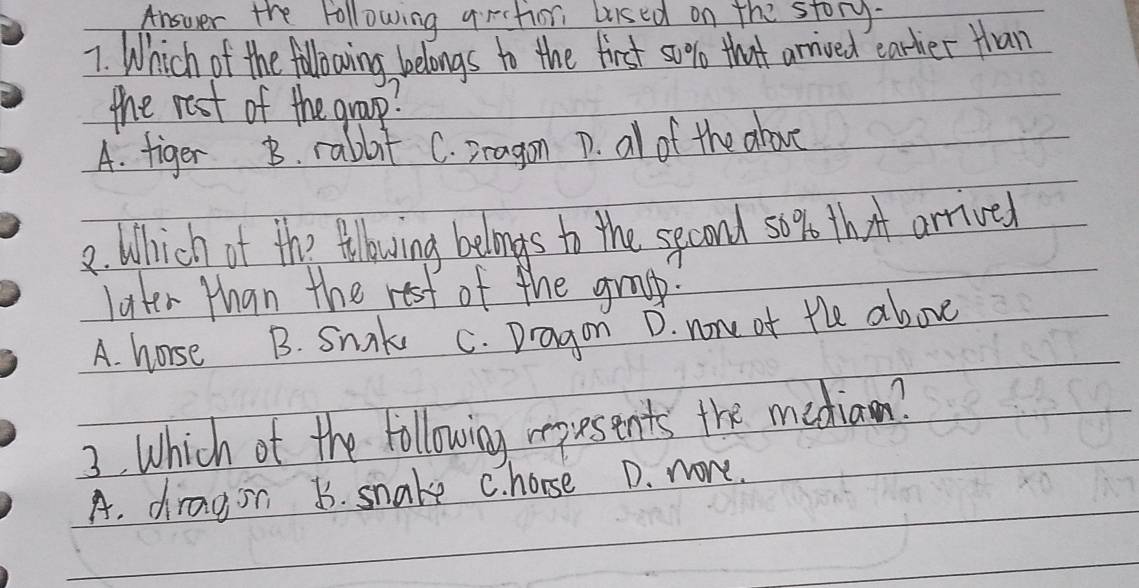 Answer the following question based on the story.
1. Which of the following belongs to the first 50% that arrived earlier than
the rest of the group?
A. tiger B. rabbit C. Dragon D. all of the above
2. Which of the following belongs to the second 50% that arrived
later than the rest of the group?
A. horse B. Snake C. Dragon D. none of the above
3. Which of the following represents the median?
A. dragon B. snake C. horse D. none.